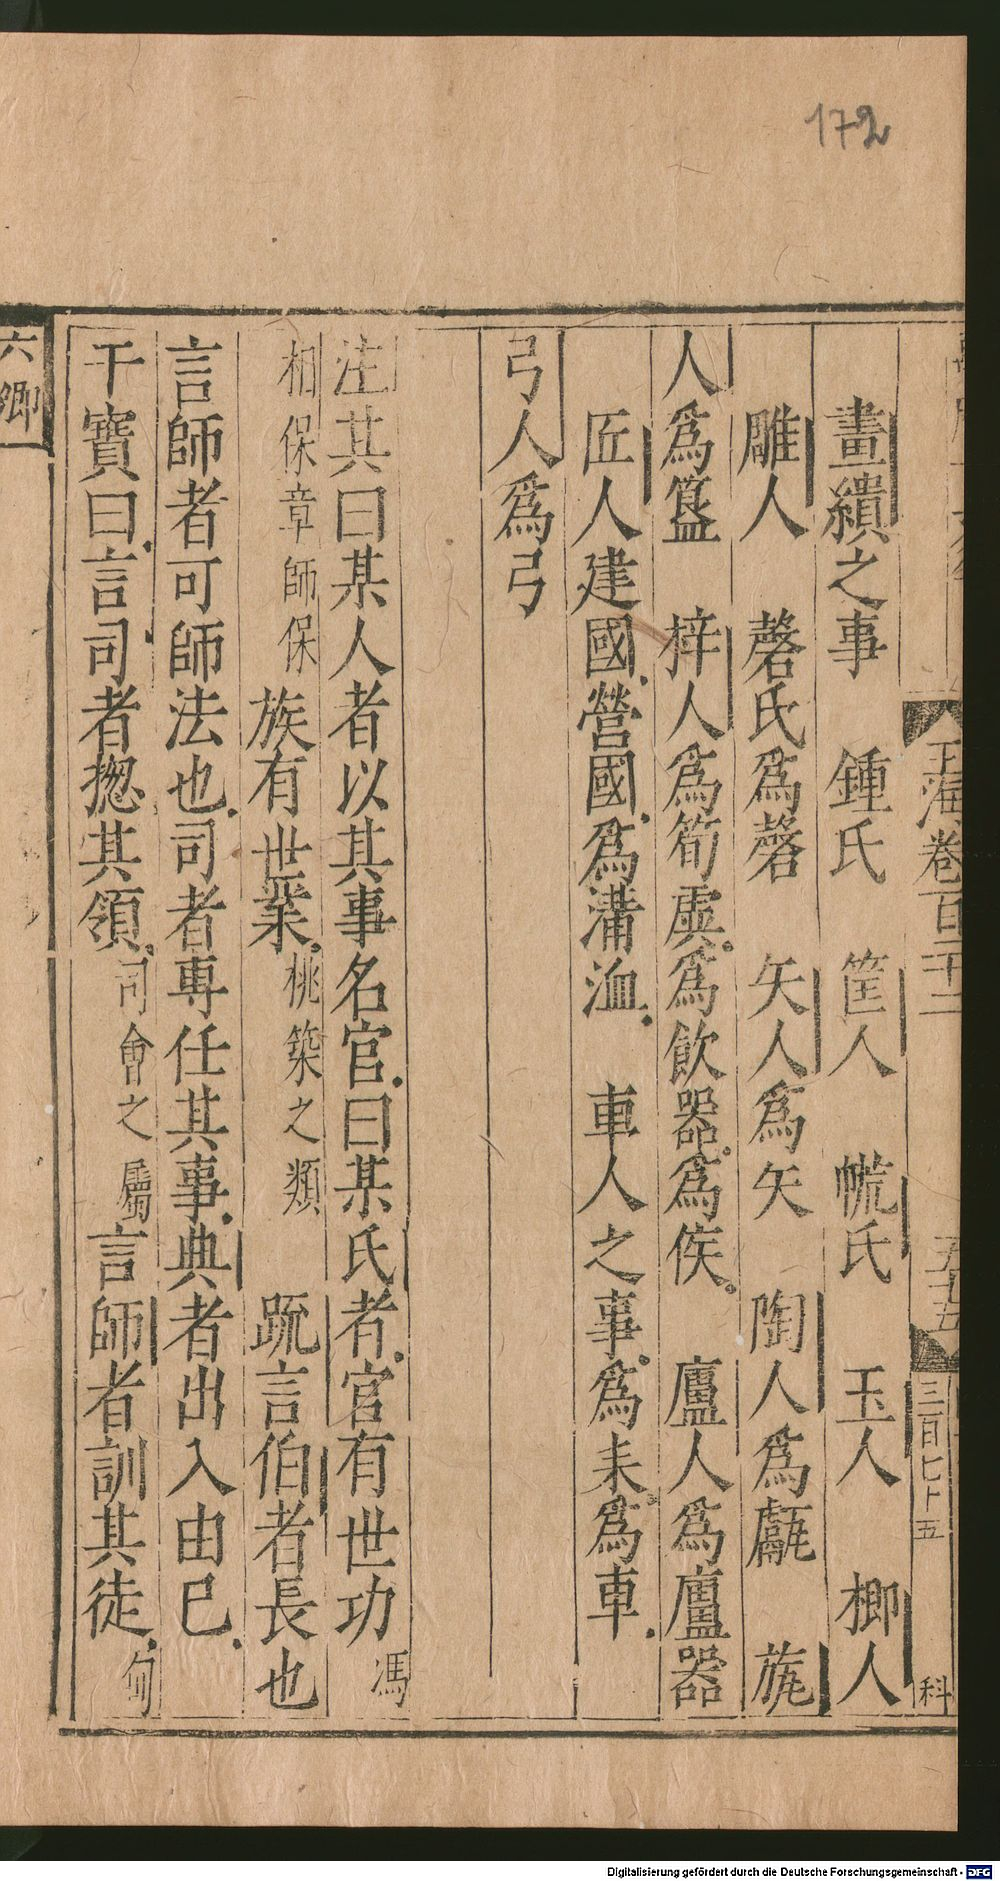 172
玉海卷百二十二
三百七十五
科
畫繢之事 鍾氏 筐人 㡛氏 玉人 楖人
雕人 磬氏為磬 矢人為矢 陶人為甗 㼚
人為簋 梓人為筍虡為飲器為侯 廬人為廬器
匠人建國營國為溝洫 車人之事為耒為車
弓人為弓
注其曰某人者以其事名官曰某氏者官有世功馮
相保章師保族有世業桃築之類 䟽言伯者長也
言師者可師法也司者専任其事典者出入由已
干寶曰言司者揔其領司會之屬言師者訓其徒甸
六卿一
Digitalisierung gefördert durch die Deutsche Forschungsgemeinschaft - DFG